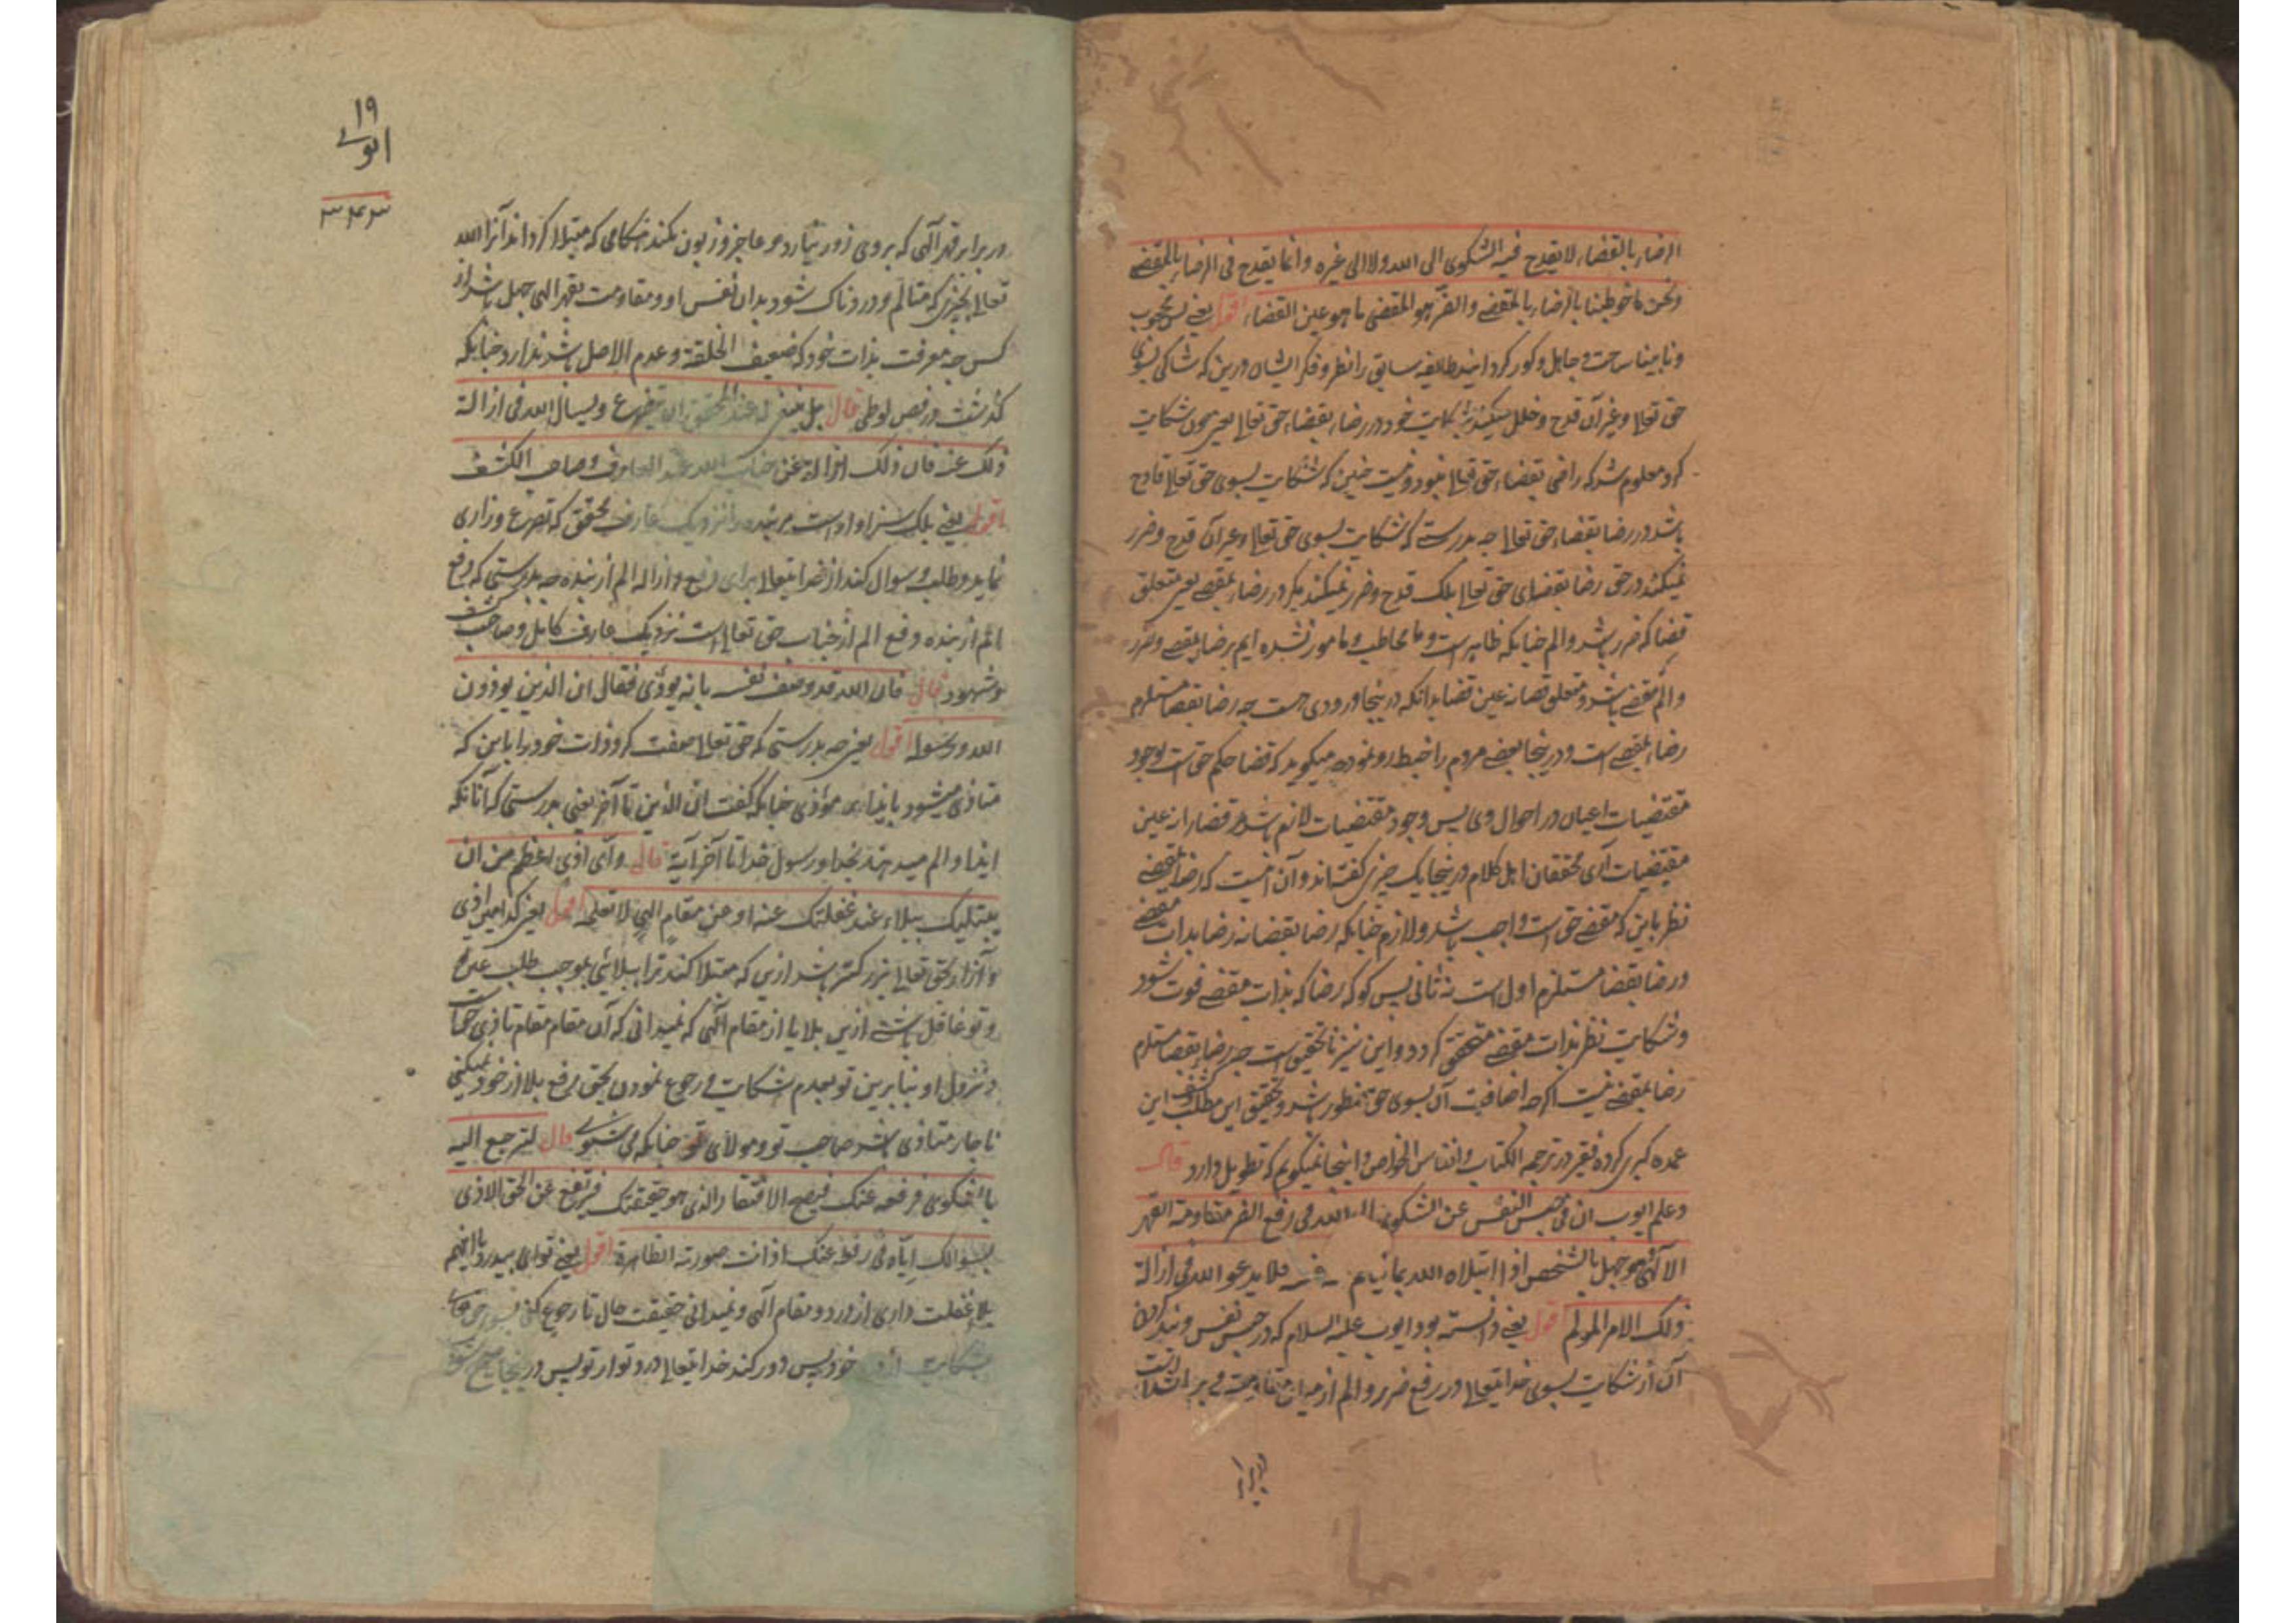 الرضاء بالقضاء لا یقدح فیه الشکوی الی الله ولا الی غیره وانما یقدح فی الرضاء بالمقضے
ونحن ما خوطبنا بالرضاء بالمقضے والضر هو المقضی ما هو عین القضاء اقول یعنے محجوب
ونابینا ساخت وجاهل وکور کردانید طایفه سابق را نظر وفکر ایشان درین که شاکی بسوی
حق تعالی وغیر آن قدح وخلل میکند شکایت خود در رضاء بقضاء حق تعالی یعنی چون شکایت
کرد معلوم شد که راضی بقضاء حق تعالی نبود ونیست چنین که شکایت بسوی حق تعالی قادح
باشد در رضا بقضاء حق تعالی چه بدرستے که شکایت بسوی حق تعالی وغیر آن قدح وضرر
نمیکند در حق رضا بقضای حق تعالی بلکه قدح وضرر نمیکند مکر در رضاء بمقضے یعنی متعلق
قضا که ضرر باشد والم چنانکه ظاهر است وما مخاطب ومامور نشده ایم برضاء بمقضے وضرر
والم مقضے باشد ومتعلق قضا نه عین قضا بدانکه درینجا ورودی هست چه رضا بقضا مستلزم
رضاء بمقضے است ودرینجا بعضے مردم را خبط رو نموده میکوید که قضا حکم حق است بوجود
مقتضیات اعیان در احوال وی پس وجود مقتضیات لازم باشد قضا را نه عین
مقتضیات آری محققان اهل کلام درینجا یک چیزی کفته اند وآن اینست که رضا بمقضے
نظر باین که مقضے حق است واجب باشد ولازم چنانکه رضا بقضا نه رضا بذات مقضے
ورضا بقضا مستلزم اول است نه ثانی پس کو که رضا که بذات مقضے فوت شود
وشکایت نظر بذات مقضے متحقق کردد واین نیز نا تحقیق است چه رضا بقضا مستلزم
رضا بمقضے نیست اکرچه اضافت آن بسوی حق منظور باشد وتحقیق این مطلب کشف این
عمده کبری کرده فقیر در ترجمه الکتاب وانفاس الخواص واینجا نمیکویم که تطویل دارد قال
وعلم ایوب ان فی حبس النفس عن الشکوی الی الله فی رفع الضر مقاومة القهر
الالهی وهو جهل بالشخص اذا ابتلاه الله بما یتالم نفسه فلا یدعو الله فی ازالة
ذلک الامر المولم اقول یعنے دانسته بود ایوب علیه السلام که در حبس نفس وبند کردن
آن از شکایت بسوی خدایتعالی در رفع ضرر والم از میان مقاومت
۱۹
ایوبے
در برابر قهر آلهی که بروی زور نیارد وعاجز وزبون نکند هنکامی که مبتلا کرداند آنرا الله
تعالی بچیزی که متالم ودردناک شود بدان نفس او ومقاومت بقهر الهی جهل باشد از
کس چه معرفت بذات خود که ضعیف الخلقة وعدم الاصل باشد ندارد چنانکه
کذشت در فص لوطی قال بل ینبغی له عند المحقق ان یتضرع ویسال الله فی ازالة
ذلک عنه فان ذلک ازالة عن جناب الله عند العارف صاحب الکشف
اقول یعنے بلکه سزاوار است مر بنده را نزدیک عارف محقق که تضرع وزاری
نماید وطلب وسوال کند از خدایتعالی برای رفع وازاله الم از بنده چه بدرستی که رفع
الم از بنده رفع الم از جناب حق تعالی است نزدیک عارف کامل وصاحب کشف
وشهود قال فان الله قد وصف نفسه بانه یوذی فقال ان الذین یوذون
الله ورسوله اقول یعنی چه بدرستی که حق تعالی صفت کرد ذات خود را باین که
متاذی میشود بایذای موذی چنانکه کفت ان الذین تا آخر یعنی بدرستی که آنانکه
ایذا والم میدهند بخدا ورسول خدا تا آخر آیة قال وای اذی اعظم من ان
یبتلیک ببلاء عند غفلتک عنه او عن مقام الهی لا تعلمه اقول یعنی کدامین اذی
وآزار بحق تعالی بزرکتر باشد ازین که مبتلا کند ترا ببلائی بموجب طلب عین
وتو غافل باشے ازین بلا یا از مقام آلهی که نمیدانی که آن مقام مقام تاذی
ونزول او بنا برین تو بعدم شکایت فی رجوع نمودن بحق رفع بلا از خود نمیکنی
ناچار متاذی باشد صاحب تو ومولای تو چنانکه می شنوے قال لترجع الیه
بالشکوی فرفعه عنک فیصح الافتقار الذی هو حقیقتک فیرتفع عن الحق الاذی
بسوالک ایاه فی رفعه عنک اذ انت صورته الظاهرة اقول یعنے
بلا غفلت داری از ورود مقام آلهی ونمیدانی حقیقت حال تا رجوع کنی بسوی
شکایت خود پس دور کند خدایتعالی درد تو از تو پس درینجا صحیح شود